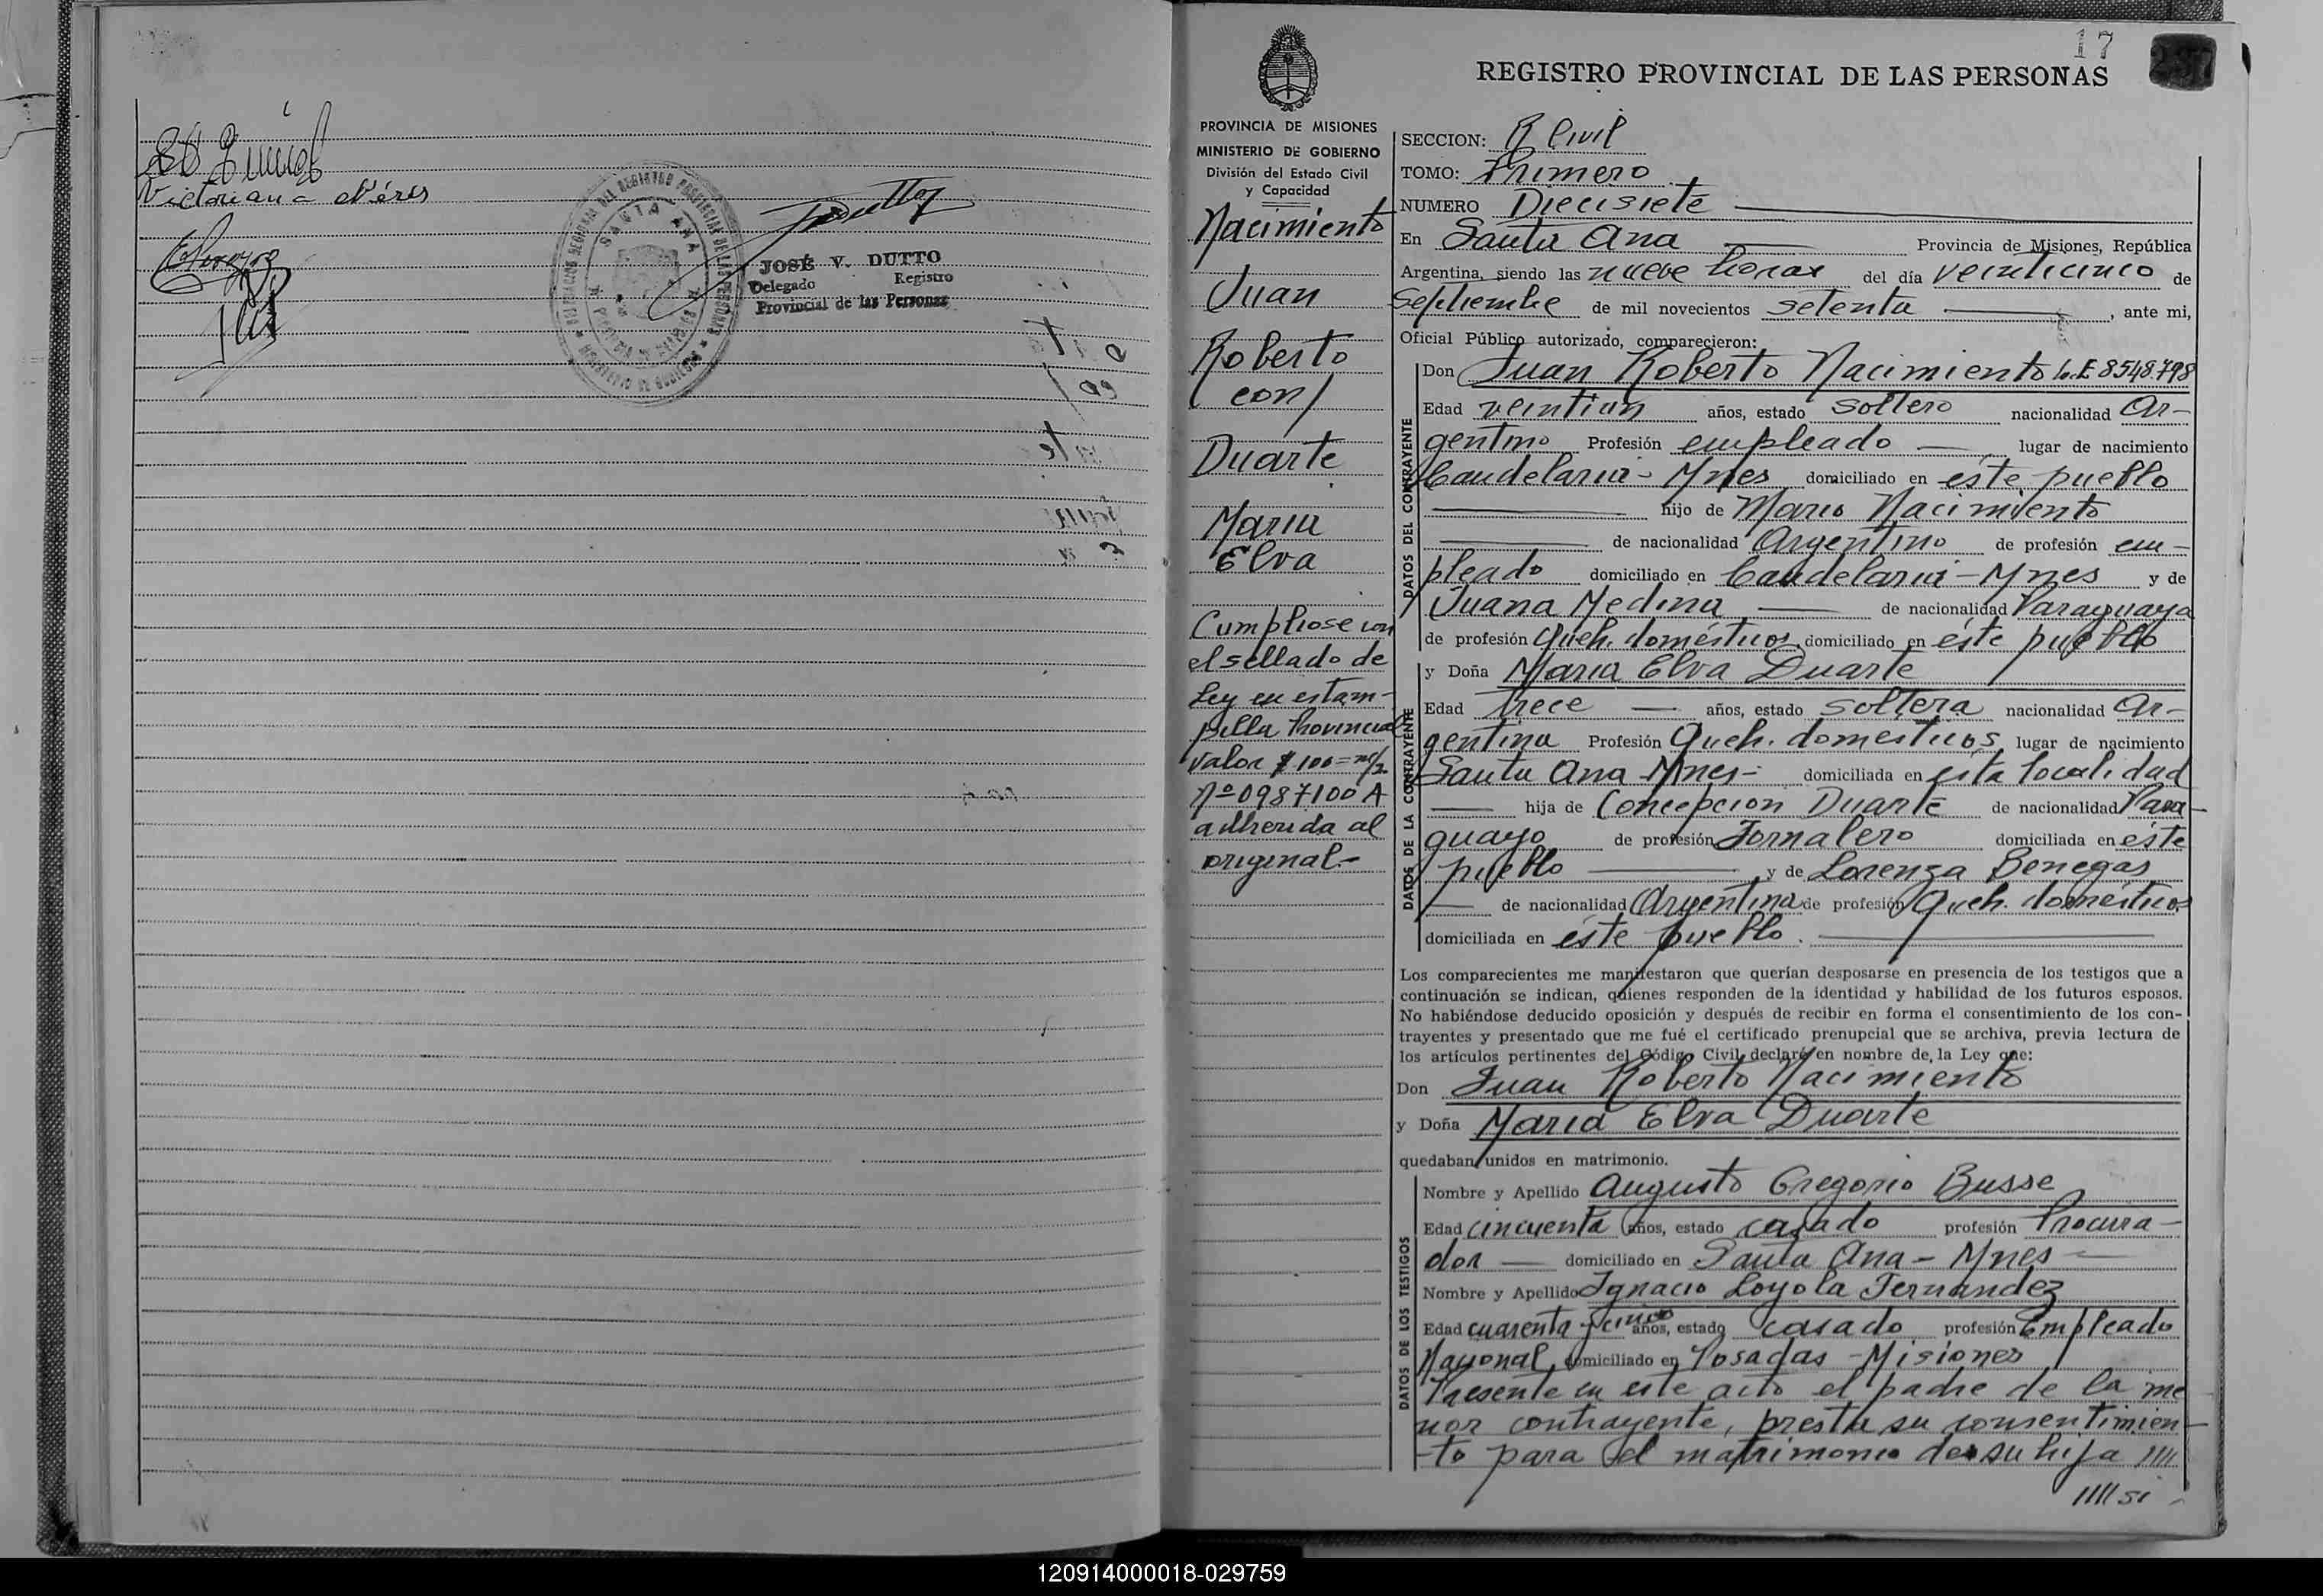 Victoriana Néres
SANTA ANA
JOSÉ V. DUTTO
Delegado Registro
Provincial de las Personas
17
REGISTRO PROVINCIAL DE LAS PERSONAS
PROVINCIA DE MISIONES
MINISTERIO DE GOBIERNO
División del Estado Civil
y Capacidad
Nacimiento
Juan
Roberto
con/
Duarte
Maria
Elva
Cumpliose con
el sellado de
Ley en estam-
pilla Provincial
Valor $ 100= m/n
Nº 0987100 A
adherida al
original.-
SECCION: R Civil
TOMO: Primero
NUMERO Diecisiete
En Santa Ana Provincia de Misiones, República
Argentina, siendo las nueve horas del día veinticinco de
Septiembre de mil novecientos setenta , ante mi,
Oficial Público autorizado, comparecieron:
DATOS DEL CONTRAYENTE
Don Juan Roberto Nacimiento L.E 8.548.798
Edad veintiun años, estado soltero nacionalidad Ar-
gentino Profesión empleado lugar de nacimiento
Candelaria - Mnes domiciliado en éste pueblo
hijo de Mario Nacimiento
de nacionalidad Argentino de profesión em-
pleado domiciliado en Candelaria - Mnes y de
Juana Medina de nacionalidad Paraguaya
de profesión Queh. domésticos domiciliado en éste pueblo
DATOS DE LA CONTRAYENTE
y Doña Maria Elva Duarte
Edad trece años, estado soltera nacionalidad Ar-
gentina Profesión Queh. domesticos lugar de nacimiento
Santa Ana Mnes- domiciliada en ésta localidad
hija de Concepcion Duarte de nacionalidad Para-
guayo de profesión Jornalero domiciliada en éste
pueblo y de Lorenza Benegas
de nacionalidad Argentina de profesión Queh. domésticos
domiciliada en éste pueblo.
Los comparecientes me manifestaron que querían desposarse en presencia de los testigos que a
continuación se indican, quienes responden de la identidad y habilidad de los futuros esposos.
No habiéndose deducido oposición y después de recibir en forma el consentimiento de los con-
trayentes y presentado que me fué el certificado prenupcial que se archiva, previa lectura de
los artículos pertinentes del Código Civil, declaré en nombre de la Ley que:
Don Juan Roberto Nacimiento
y Doña Maria Elva Duarte
quedaban unidos en matrimonio.
DATOS DE LOS TESTIGOS
Nombre y Apellido Augusto Gregorio Busse
Edad cincuenta años, estado casado profesión Procura-
dor domiciliado en Santa Ana - Mnes
Nombre y Apellido Ignacio Loyola Fernández
Edad cuarenta y cinco años, estado casado profesión Empleado
Nacional domiciliado en Posadas - Misiones
Presente en este acto el padre de la me
nor contrayente, presta su consentimien-
-to para el matrimonio de su hija /////
//// si -
120914000018-029759